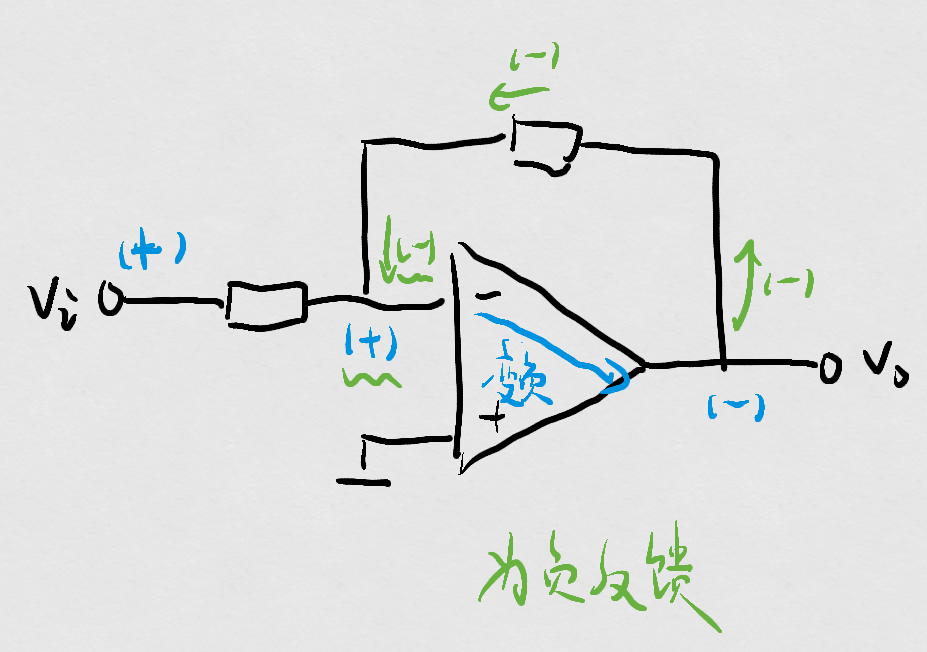 (-)
(+)
(-)
(-)
Vi
-
(+)
变负
Vo
+
(-)
为负反馈